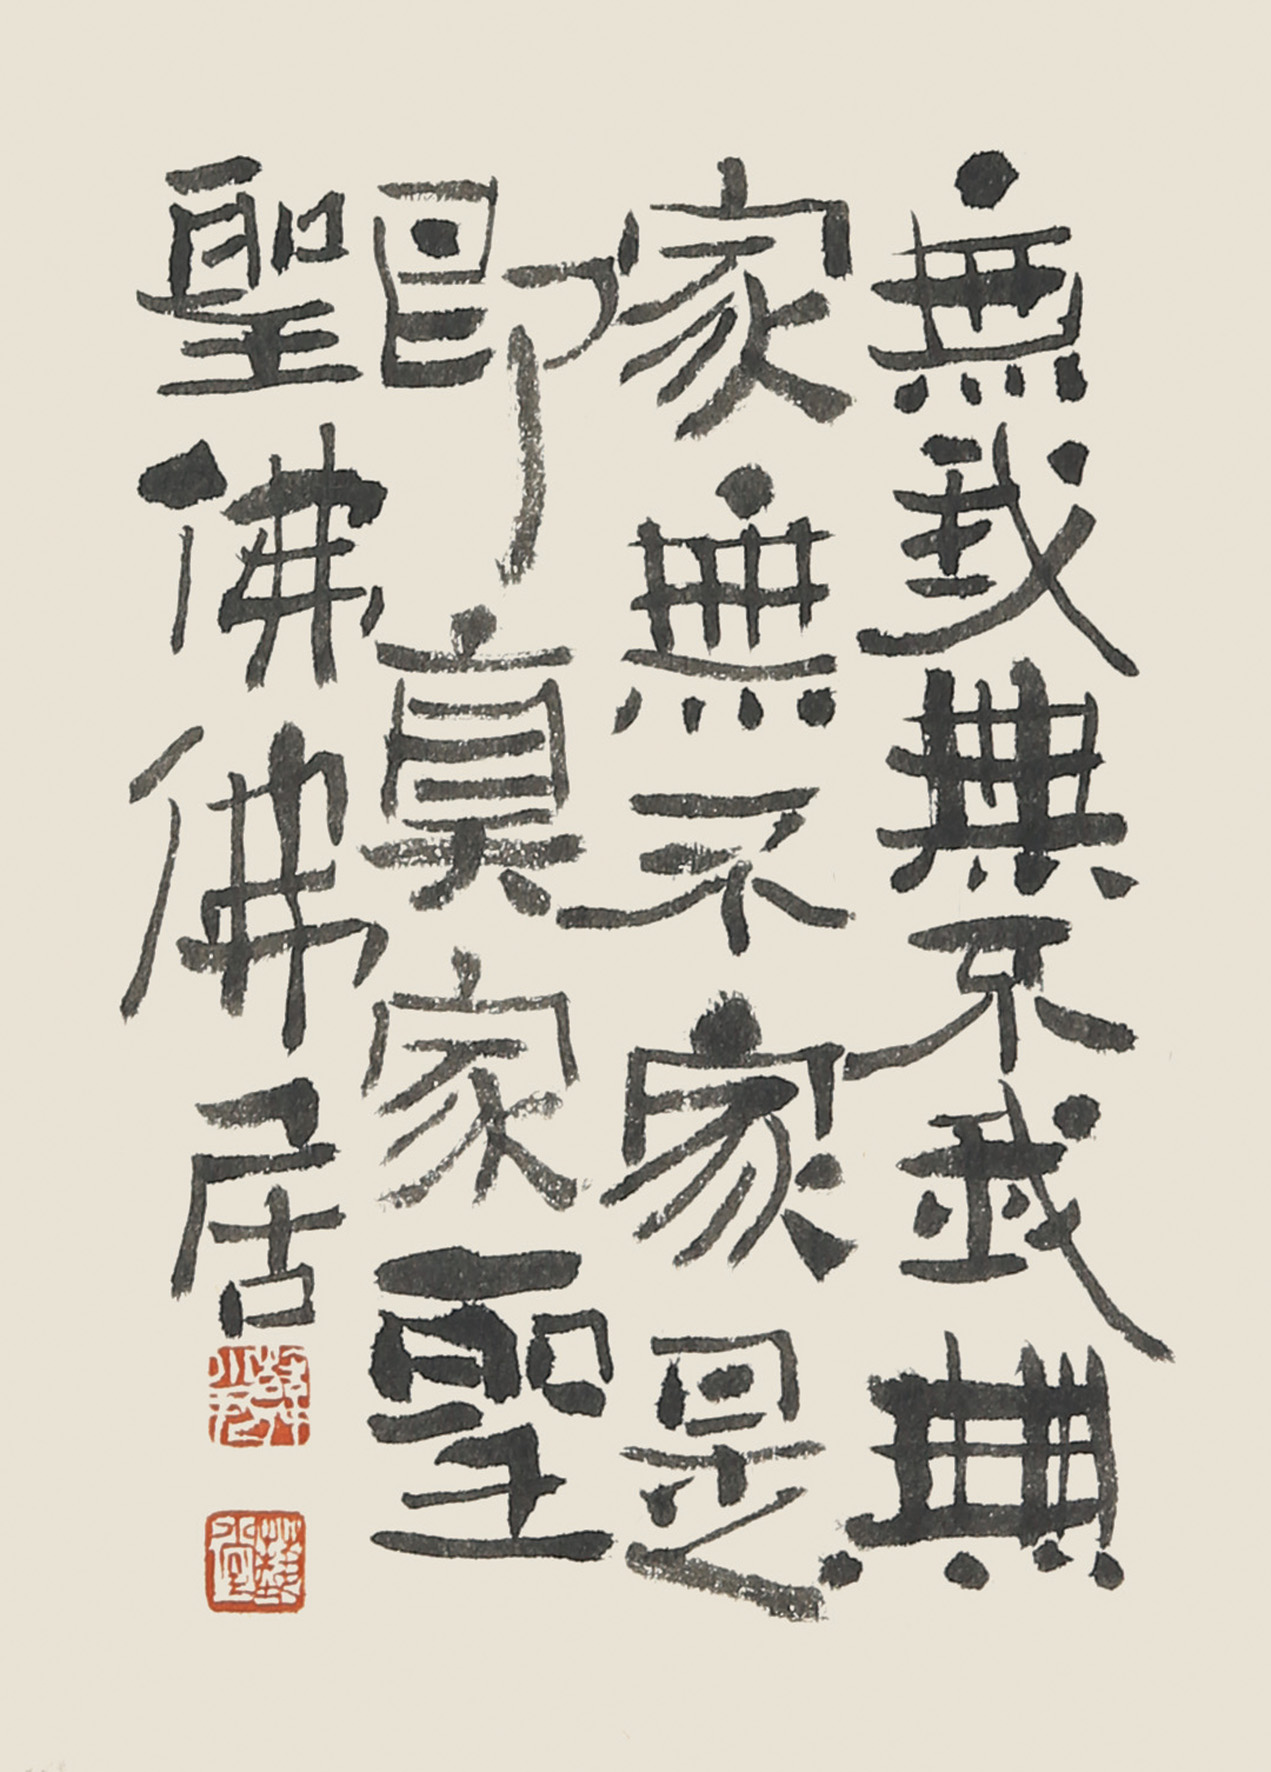 無我無不我無
家無不家是
即真家聖
聖佛佛居